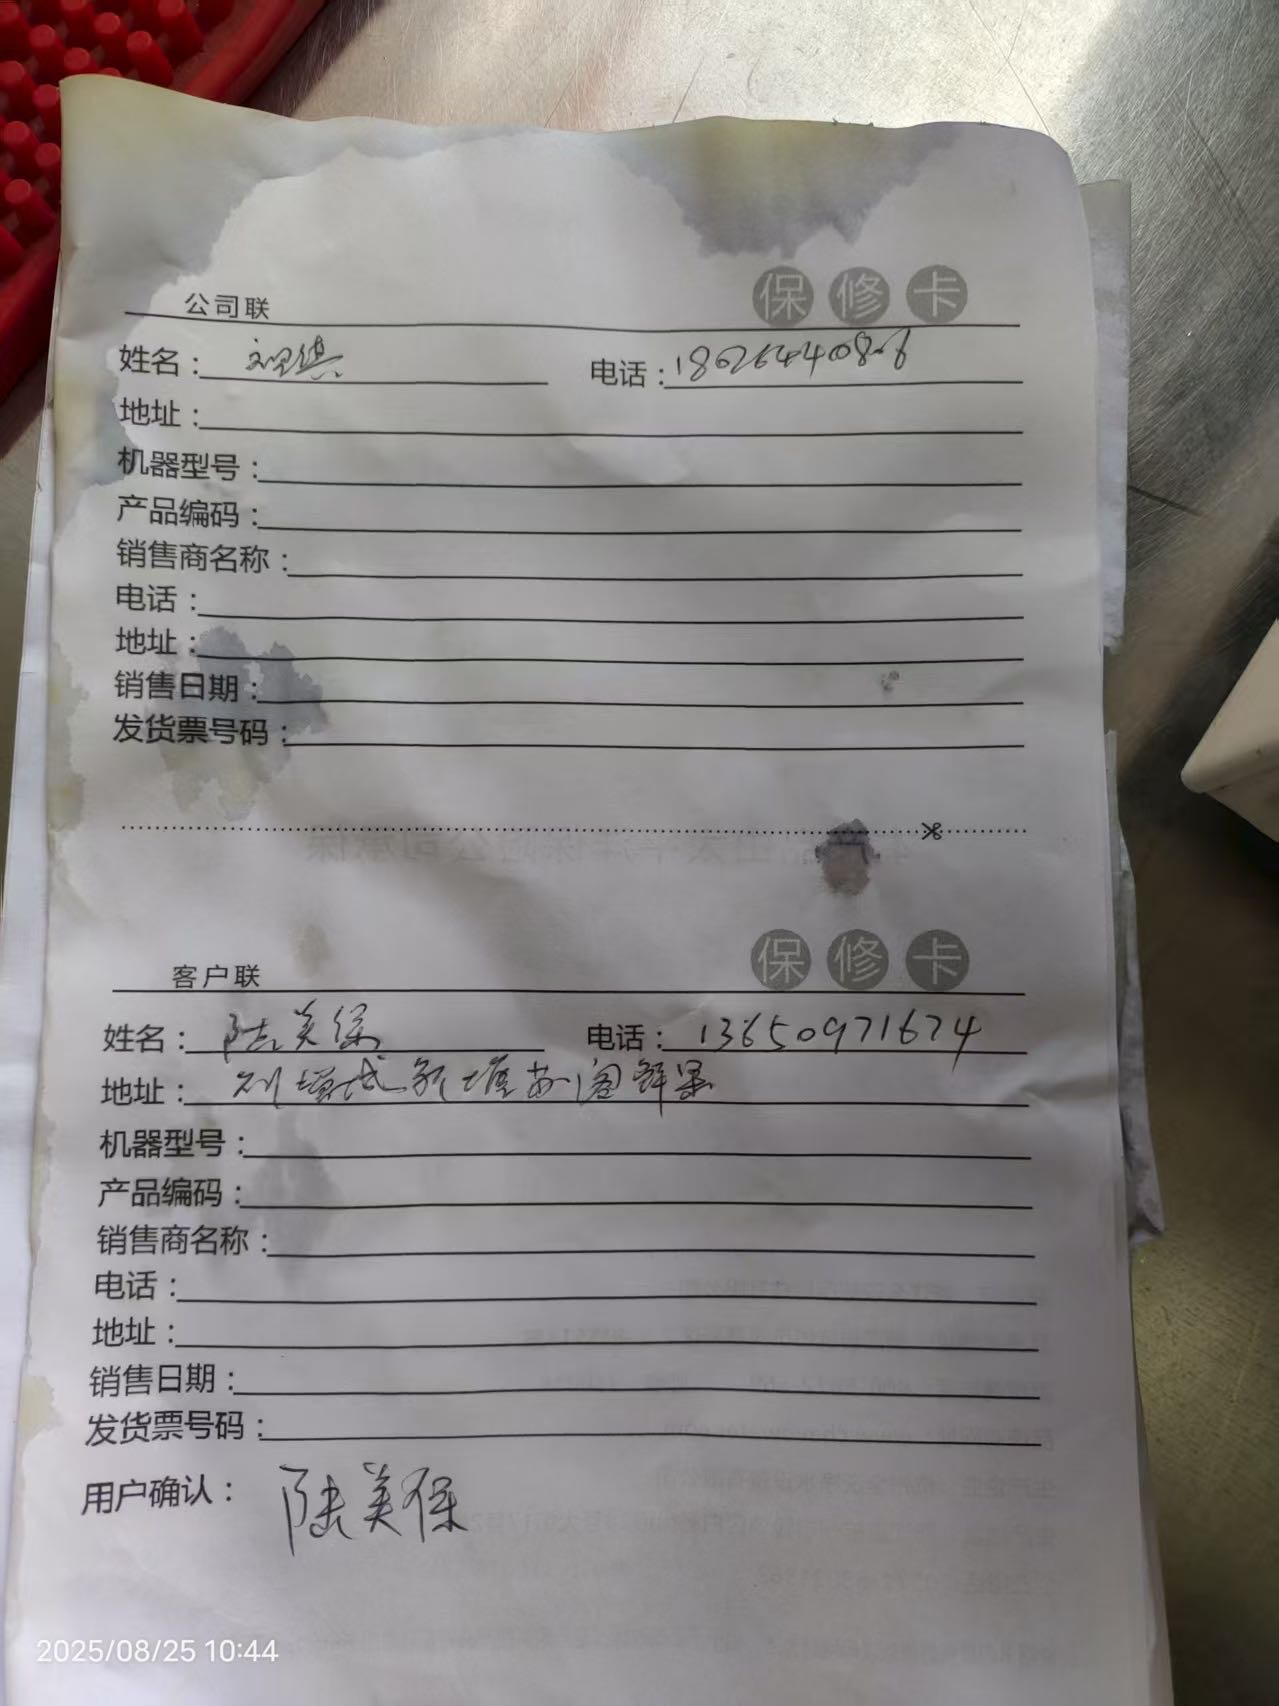 公司联
保修卡
姓名： 电话：
地址：
机器型号：
产品编码：
销售商名称：
电话：
地址：
销售日期：
发货票号码：
客户联
保修卡
姓名：陆美保 电话：13650971674
地址：增城新塘
机器型号：
产品编码：
销售商名称：
电话：
地址：
销售日期：
发货票号码：
用户确认：陆美保
2025/08/25 10:44